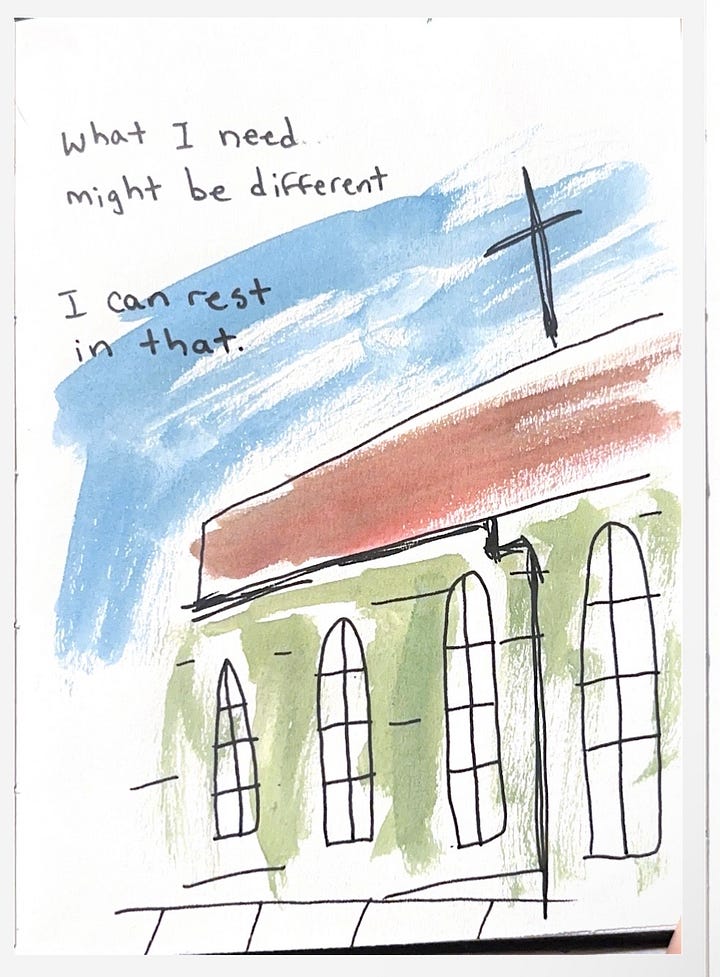 What I need
might be different
I can rest
in that.